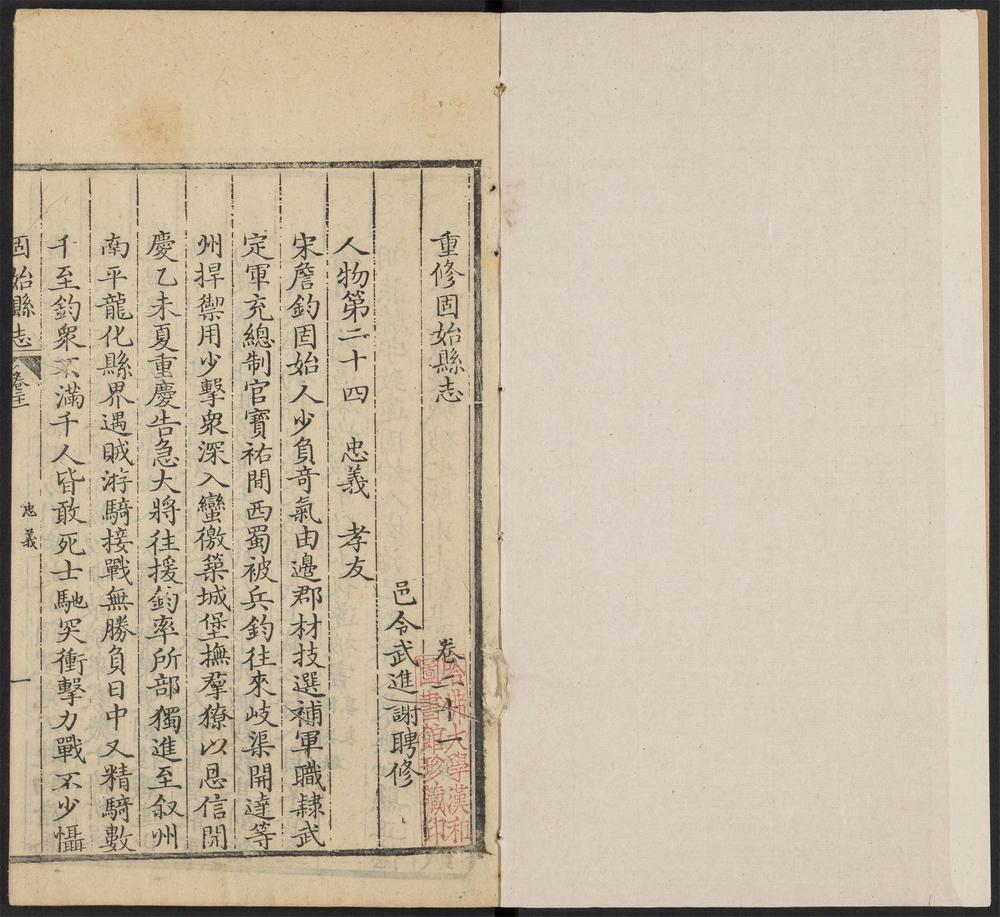 重修固始縣志 卷二十一
邑令武進謝聘修
人物第二十四 忠義 孝友
宋詹鈞固始人少負奇氣由邊郡材技選補軍職隸武
定軍充總制官寶祐間西蜀被兵鈞往來岐渠開達等
州捍禦用少擊衆深入蠻徼築城堡撫羣獠以恩信開
慶乙未夏重慶告急大將往援鈞率所部獨進至叙州
南平龍化縣界遇賊游騎接戰無勝負日中又精騎數
千至鈞衆不滿千人皆敢死士馳突衝擊力戰不少懾
固始縣志 忠義 一
哈佛大學漢和
圖書館珍藏印